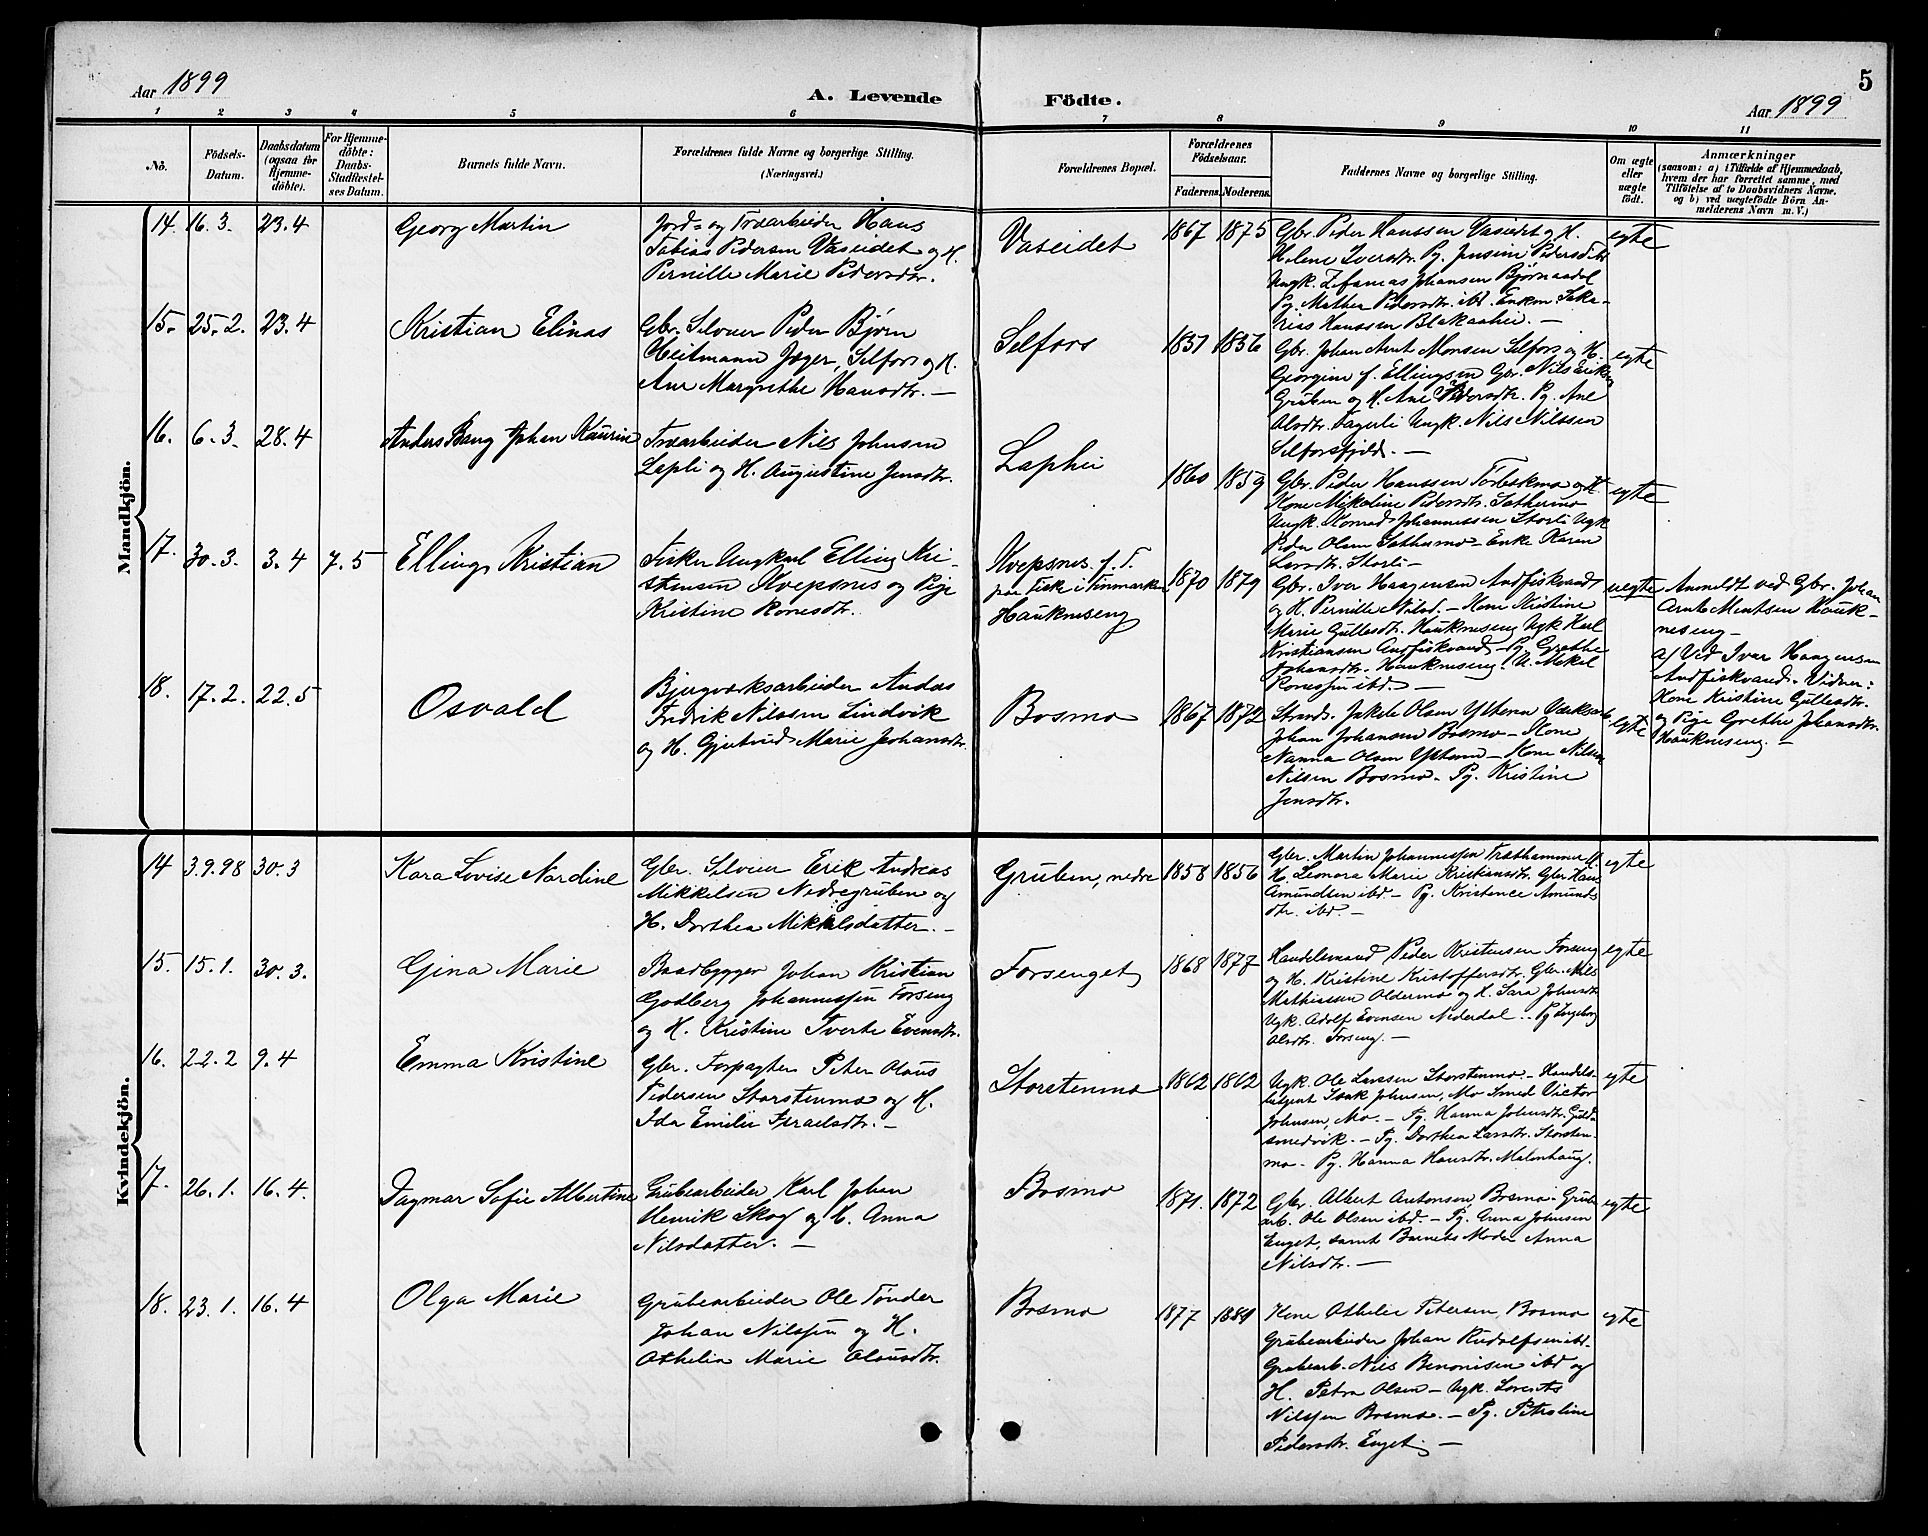 Aar 1899
A. Levende Födte.
5
Aar 1899
1 2 3 4 5 6 7 8 9 10 11
No.
Födsels-
Datum.
Daabsdatum
(ogsaa for
Hjemme-
döbte).
For Hjemme-
döbte:
Daabs-
Stadfæstel-
ses Datum.
Barnets fulde Navn.
Forældrenes fulde Navne og borgerlige Stilling.
(Næringsvei.)
Forældrenes Bopæl.
Forældrenes
Födselsaar.
Faderens. Moderens.
Faddernes Navne og borgerlige Stilling.
Om ægte
eller
uægte
födt.
Anmærkninger
(saasom: a) i Tilfælde af Hjemmedaab,
hvem der har forrettet samme, med
Tilföielse af to Daabsvidners Navne,
og b) ved uægtefödte Börn An-
melderens Navn m. V.)
Mandkjön.
14. 16.3. 23.4
Georg Martin
Jord- og Træarbeider Hans
Tobias Pedersen Vaseidet og H.
Pernille Marie Pedersdtr.
Vaseidet
1867 1875
Gbr. Peder Hanssen Vaseidet og H.
Helene Iversdtr. Pg. Jensine Pedersd. ibd.
Ungk. Zefanias Johansen Bjørnaadal
Pg. Mathea Pedersdtr. ibd. Enkm. Saka-
rias Hanssen Blakaahei. —
egte
15. 25.2. 23.4
Kristian Elinas
Gbr. Selveier Peder Bjørn
Heitmann Jæger, Selfors og H.
Ane Margrethe Hansdtr. —
Selfors
1857 1856
Gbr. Johan Arnt Monsen Selfors og H.
Georgine f. Ellingsen Gbr. Nils Eriksen
Gruben og H. Ane Pedersdtr. Pg. Ane
Olsdtr. Fagerli Ungk. Nils Nilssen
Selforsfjeld. —
egte
16. 6.3. 28.4
Anders Bang Johan Kaurin
Træarbeider Nils Johnsen
Lapli og H. Augustine Jensdtr.
Laphei
1860 1859
Gbr. Peder Hanssen Torbekmo og H.
Kone Mikoline Pedersdtr. Sathermo
Ungk. Konrad Johannessen Storli Ungk
Peder Olsen Sathermo — Enke Karen
Larsdtr. Storli —
egte
17. 30.3. 3.4 7.5
Elling Kristian
Fisker Ungkarl Elling Kri-
stensen Kvepsnes og Pige
Kristine Ronesdtr.
Kvepsnes. f. T.
paa Fiske i Finmarken
Hauknesseng
1870 1879
Gbr. Ivar Haagensen Andfiskvand
og H. Pernille Nilsd. — Kone Kristine
Marie Gullesdtr. Hauknesseng Ugk Karl
Kristiansen Andfiskvand — Pg. Grethe
Johansdtr. Hauknesseng. U. Mekal
Ronessen ibd. —
uegte
Anmeldt ved Gbr. Johan
Arnt Mentsen Hauk-
neseng —
a) Ved Ivar Haagensen
Andfiskvand. Vidner:
Kone Kristine Gullesdtr.
og Pige Grethe Johansdtr.
Hauknesseng. —
18. 17.2. 22.5
Osvald
Bjergværksarbeider Andeas
Fredrik Nilssen Lindvik
og H. Gjertrud Marie Johansdtr.
Bosmo
1867 1872
Strands. Jakob Olsen Ytteren Værksarb.
Johan Johansen Bosmo — Kone
Nanna Olsen Ytteren — Kone Nilsine
Nilsen Bosmo — Pg. Kristine
Jensdtr.
egte
Kvindekjön.
14 3.9.98 30.3
Kara Lovise Nardine
Gbr. Selveier Erik Andreas
Mikkelsen Nedregruben og
H. Dorthea Mikkelsdatter. —
Gruben, nedre
1858 1856
Gbr. Martin Johannessen Træthammer og
H. Leonora Marie Kristiansdtr. Gbr. Hans
Amundsen ibd. — Pg. Kristence Amunds
dtr. ibd. —
egte
15. 15.1. 30.3.
Gina Marie
Baadbygger Johan Kristian
Godberg Johannessen Forseng
og H. Kristine Tverte Evensdtr.
Forsenget
1868 1877
Handelsmand Peder Kristensen Forseng
og H. Kristine Kristoffersdtr. Gbr. Nils
Mathiassen Oldermo og H. Sara Johnsdtr
Ugk. Adolf Evensen Nederdal — Pg Ingeborg
Olsdtr. Forseng. —
egte
16. 22.2 9.4
Emma Kristine
Gbr. Forpagter Peter Olaus
Pedersen Storstenmo og H.
Ida Emilie Israelsdtr. —
Storstenmo
1862 1862
Ugk. Ole Larssen Storstenmo — Handels-
betjent Isak Johnsen, Mo Smed Victor
Johnsen, Mo. — Pg. Hanna Johnsdtr. Guld-
smedvik. — Pg. Dorthea Larsdtr. Storsten-
mo — Pg. Hanna Hansdtr. Malenhaug.
egte
17. 26.1. 16.4.
Dagmar Sofie Albertine
Grubearbeider Karl Johan
Henrik Skog og H. Anna
Nilsdatter. —
Bosmo
1871. 1872
Gbr. Albert Antonsen Bosmo — Grube
arb. Ole Olsen ibd. — Pg. Anna Johnsen
Enget, samt Barnets Moder Anna
Nilsdtr. —
egte
18. 23.1. 16.4
Olga Marie
Grubearbeider Ole Tønder
Johan Nilssen og H.
Othelia Marie Olausdtr.
Bosmo
1877 1881
Kone Othelie Petersen, Bosmo
Grubearbeider Johan Rudolfsen ibd.
Grubearb. Nils Benonisen ibd og
H. Petra Olsen — Ugk. Lorents
Nilssen Bosmo. — Pg. Petroline
Pedersdtr. Enget —
egte